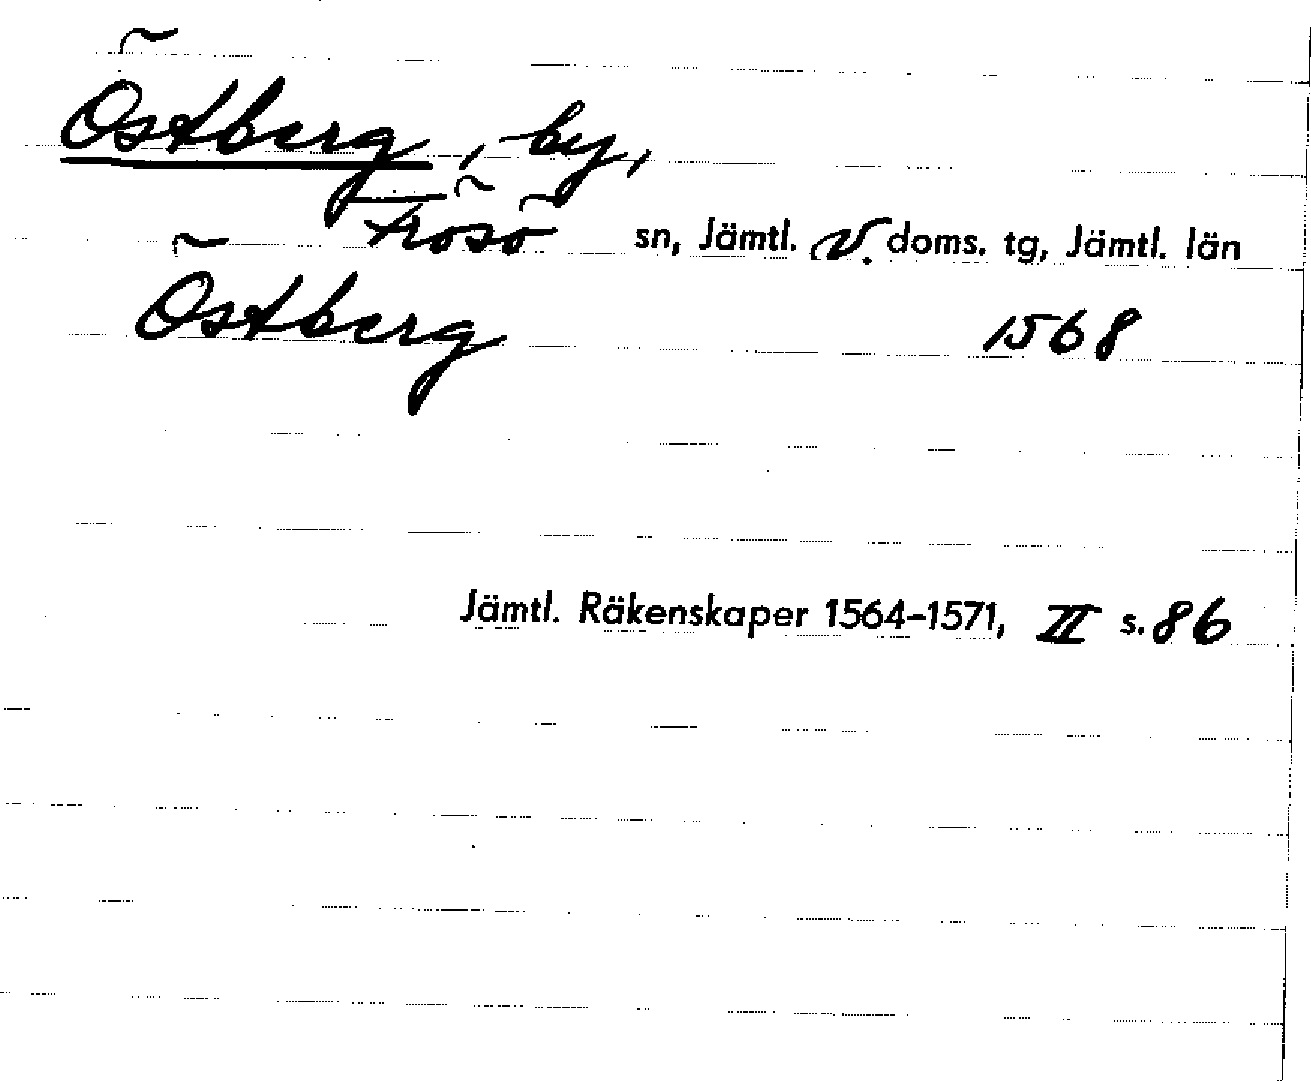 Östberg, by,
Frösö sn, Jämtl. v. doms. tg, Jämtl. län
Östberg 1568
Jämtl. Räkenskaper 1564-1571, II s. 86